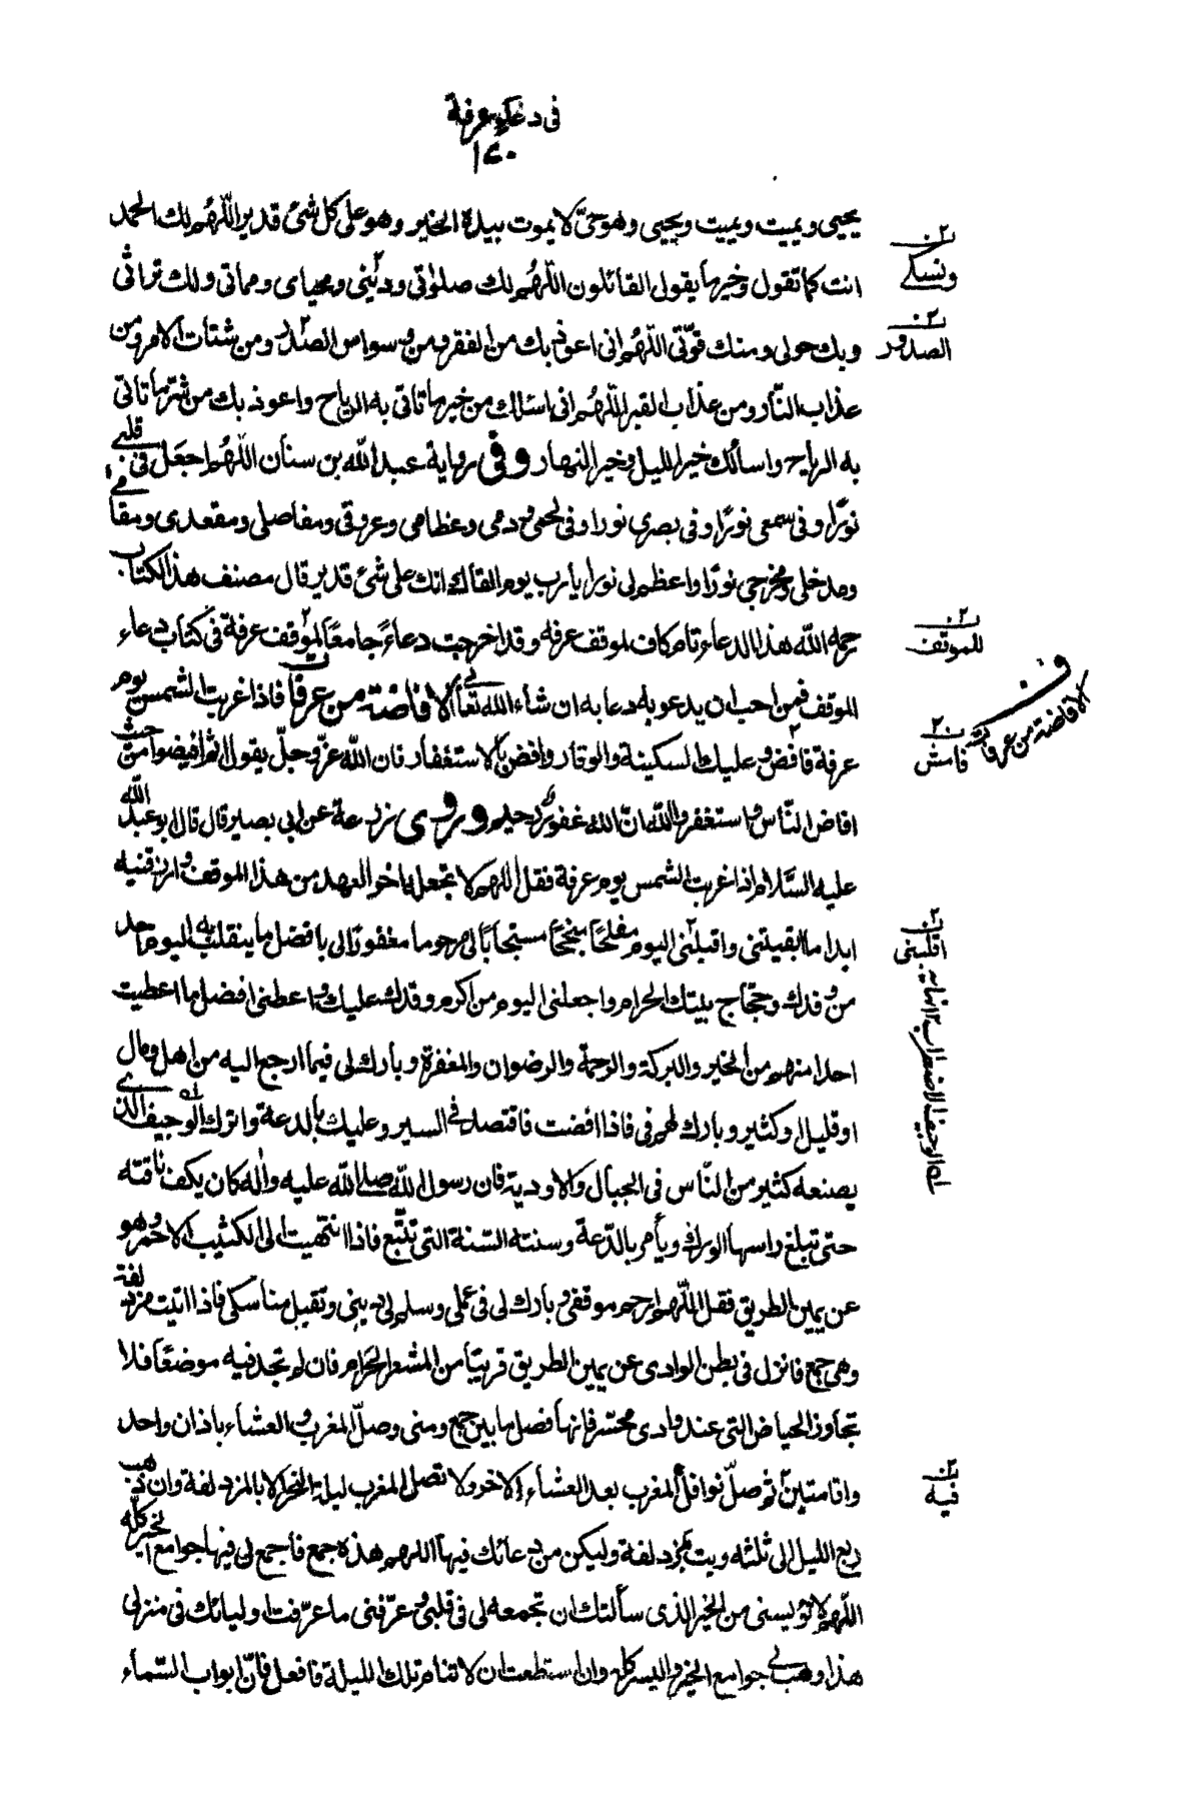 فى دعاء عرفة
١٤٠
يحيى ويميت ويميت ويحيى وهو حىّ لا يموت بيده الخير وهو على كل شئ قدير اللّهمّ لك الحمد
انت كما تقول وخير ما يقول القائلون اللّهمّ لك صلوٰتى ودينى ومحياى ومماتى ولك تراثى
وبك حولى ومنك قوّتى اللّهمّ انى اعوذ بك من الفقر ومن وسواس الصّدر ومن شتات الامر ومن
عذاب النّار ومن عذاب القبر اللّهمّ انى اسئلك من خير ما تاتى به الرياح واعوذ بك من شرّ ما تاتى
به الرياح واسألك خير الليل وخير النهار وفى رواية عبد الله بن سنان اللّهمّ اجعل فى قلبى
نورًا وفى سمعى نورًا وفى بصرى نورا وفى لحمى ودمى وعظامى وعروقى ومفاصلى ومقعدى ومقامى
ومدخلى ومخرجى نورًا واعظم لى نورا يا رب يوم القاك انك على شئ قدير قال مصنف هذا الكتاب
رحمه الله هذا الدعاء تام كاف لموقف عرفه وقد اخرجت دعاءً جامعًا لموقف عرفة فى كتاب دعاء
الموقف فمن احب ان يدعو به دعا به ان شاء الله تعالى الافاضة من عرفات فاذا غربت الشمس يوم
عرفة فافض وعليك السكينة والوقار وافض بالاستغفار فان الله عزّ وجلّ يقول ثم افيضوا من حيث
افاض النّاس واستغفروا الله انّ الله غفور رحيم وروى زرعة عن ابى بصير قال قال ابو عبد الله
عليه السّلام اذا غربت الشمس يوم عرفة فقل اللّهم لا تجعله اخر العهد من هذا الموقف وارزقنيه
ابدا ما ابقيتنى واقبلنى اليوم مفلحًا منجحًا مستجابًا لى مرحوما مغفورًا لى بافضل ما ينقلب به اليوم احد
من وفدك وحجّاج بيتك الحرام واجعلنى اليوم من اكرم وفدك عليك واعطنى افضل ما اعطيت
احدا منهم من الخير والبركة والرحمة والرضوان والمغفرة وبارك لى فيما ارجع اليه من اهل ومال
او قليل او كثير وبارك لهم فى فاذا افضت فاقتصد فى السير وعليك بالدعة واترك الوجيف الذى
يصنعه كثير من النّاس فى الجبال والاودية فان رسول الله صلى الله عليه واله كان يكف ناقته
حتى تبلغ راسها الورك ويأمر بالدّعة وسنته السّنة التى تتّبع فاذا انتهيت الى الكثيب الاحمر وهو
عن يمين الطريق فقل اللّهم ارحم موقفى وبارك لى فى عملى وسلم لى دينى وتقبل مناسكى فاذا اتيت مزدلفة
وهى جمع فانزل فى بطن الوادى عن يمين الطريق قريبًا من المشعر الحرام فان لم تجد فيه موضعًا فلا
تجاوز الحياض التى عند وادى محسّر فانها فصل ما بين جمع ومنى وصلّ المغرب والعشاء باذان واحد
واقامتين ثم صلّ نوافل المغرب بعد العشاء الاخر ولا تصل المغرب ليلة النحر الا بالمزدلفة وان ذهب
ربع الليل الى ثلثه وبت بمزدلفة وليكن من دعائك فيها اللهم هذه جمع فاجمع لى فيها جوامع الخير كله
اللّهم لا تؤيسنى من الخير الذى سألتك ان تجمعه لى فى قلبى وعرّفنى ما عرّفت اوليائك فى منزلى
هذا وهب لى جوامع الخير واليسر كله وان استطعت ان لا تنام تلك الليلة فافعل فانّ ابواب السّماء
ونسكى
الصدور
للموقف
الافاضة من عرفات
فامش
اقلبنى
له الوجيف الاضطراب ١٢ نهايه
فيه